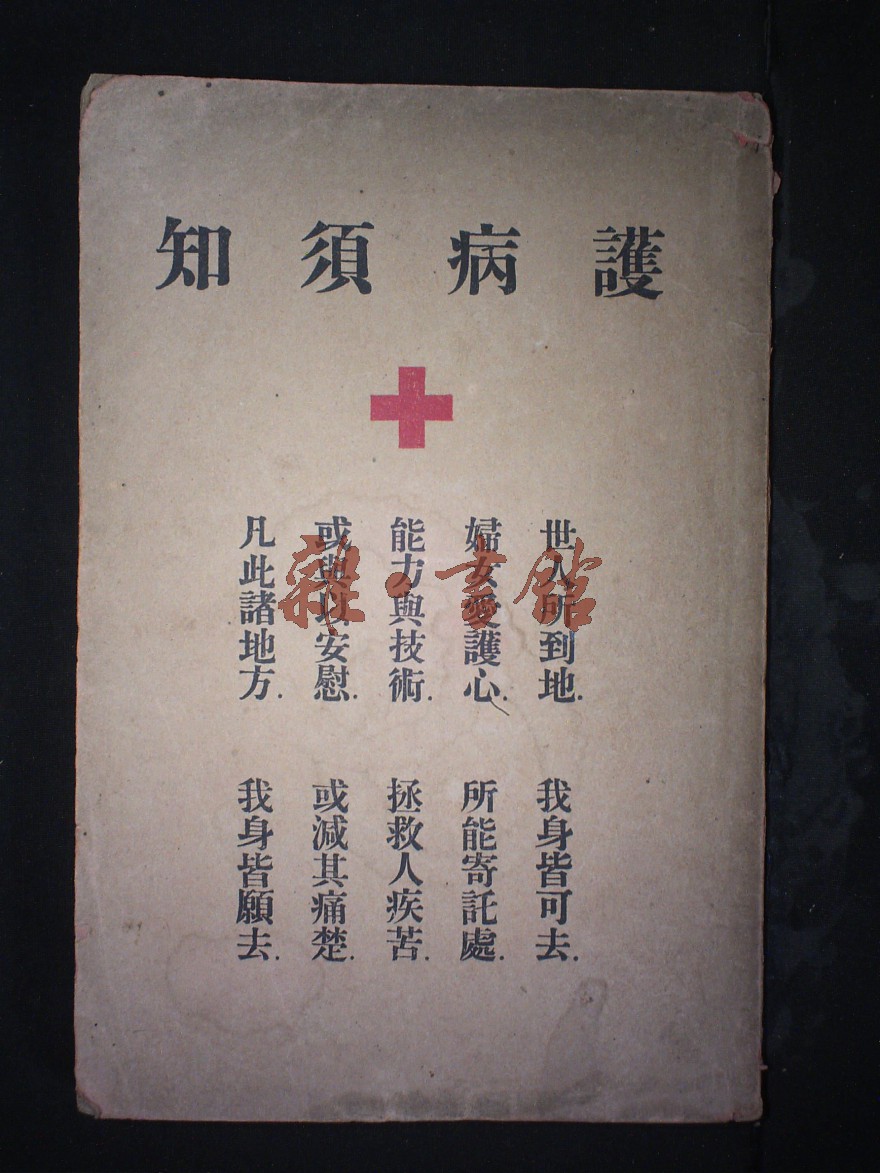 護病須知
世人所到地.
我身皆可去.
婦女愛護心.
所能寄託處.
能力與技術.
拯救人疾苦.
或與以安慰.
或減其痛楚.
凡此諸地方.
我身皆願去.
雜·書館